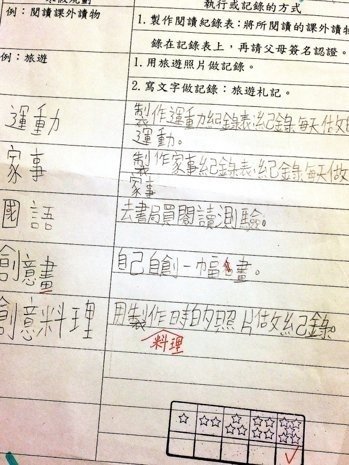 執行或記錄的方式
例：閱讀課外讀物
1. 製作閱讀紀錄表：將所閱讀的課外讀物
錄在記錄表上，再請父母簽名認證。
例：旅遊
1. 用旅遊照片做記錄。
2. 寫文字做記錄：旅遊札記。
運動
製作運動紀錄表，紀錄每天做的
運動。
家事
製作家事紀錄表，紀錄每天做的
家事
國語
去書局買閱讀測驗。
創意畫
自己自創一幅畫。
創意料理
用製作時的照片做紀錄。
料理